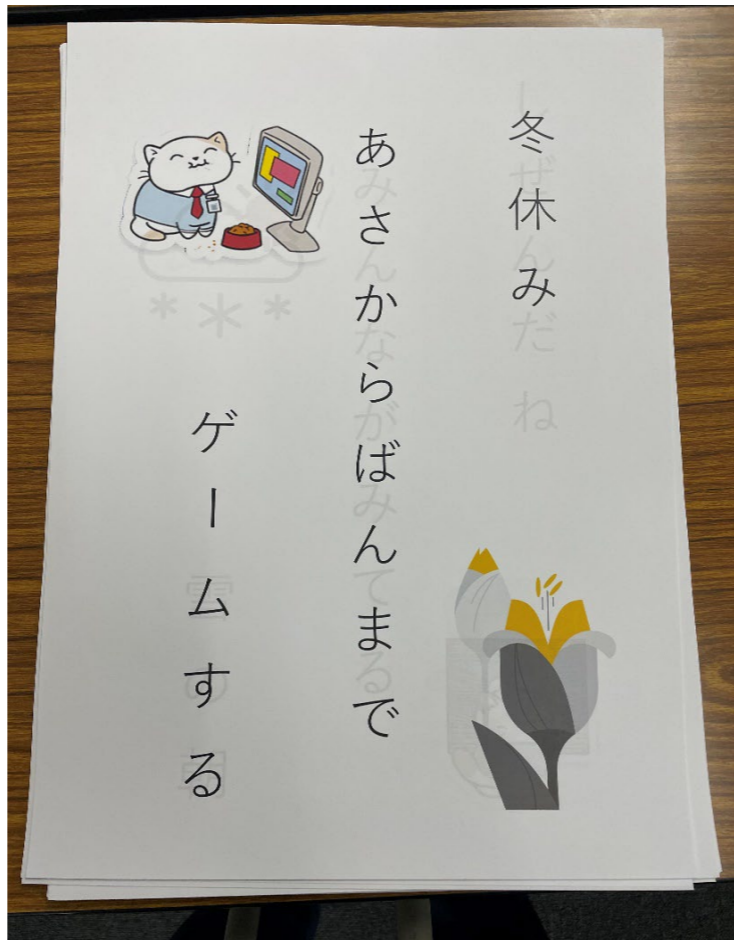 冬休み
あさからばんまで
ゲームする